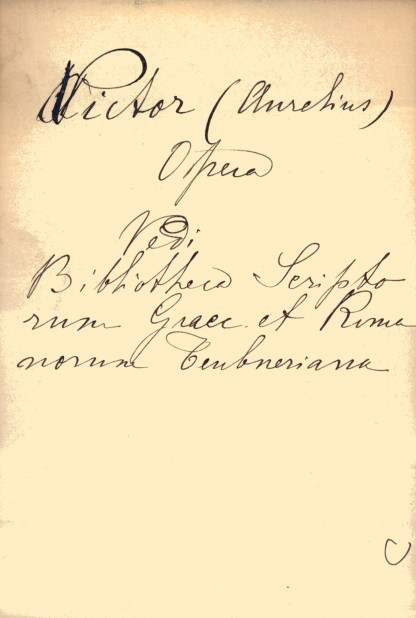 Victor (Aurelius)
Opera
Vedi
Bibliotheca Scripto
rum Graec. et Roma
norum Teubneriana